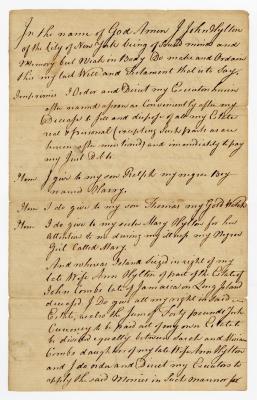 In the name of God Amen I John Hylton
of the City of New York being of Sound mind and
Memory but Weak in Body Do make and Ordain
this my last Will and Testament that is to Say.
Imprimis I Order and Direct my Executors herein
after named as soon as Conveniently after my
Decease to sell and dispose of all my Estate
real & personal (excepting such parts as are
herein after mentioned) and immediately to pay
my Just Debts.
Item I give to my son Ralph my negro Boy
named Harry.
Item I do give to my son Thomas my Gold Watch
Item I do give to my sister Mary Hylton for her
attention to me during my my Negroe
Girl Called Mary.
And whereas I stand Seized in right of my
late Wife Ann Hylton of part of the Estate of
John Combs late of Jamaica on Long Island
deceased I Do give all my right in Said
Estate, under the Sum of Forty pounds York
Currency to be paid out of my own Estate to
be divided equally between Sarah and
Combs daughters of my late Wife Ann Hylton
and I do order and Direct my Executors to
apply the said Monies in Such manner for